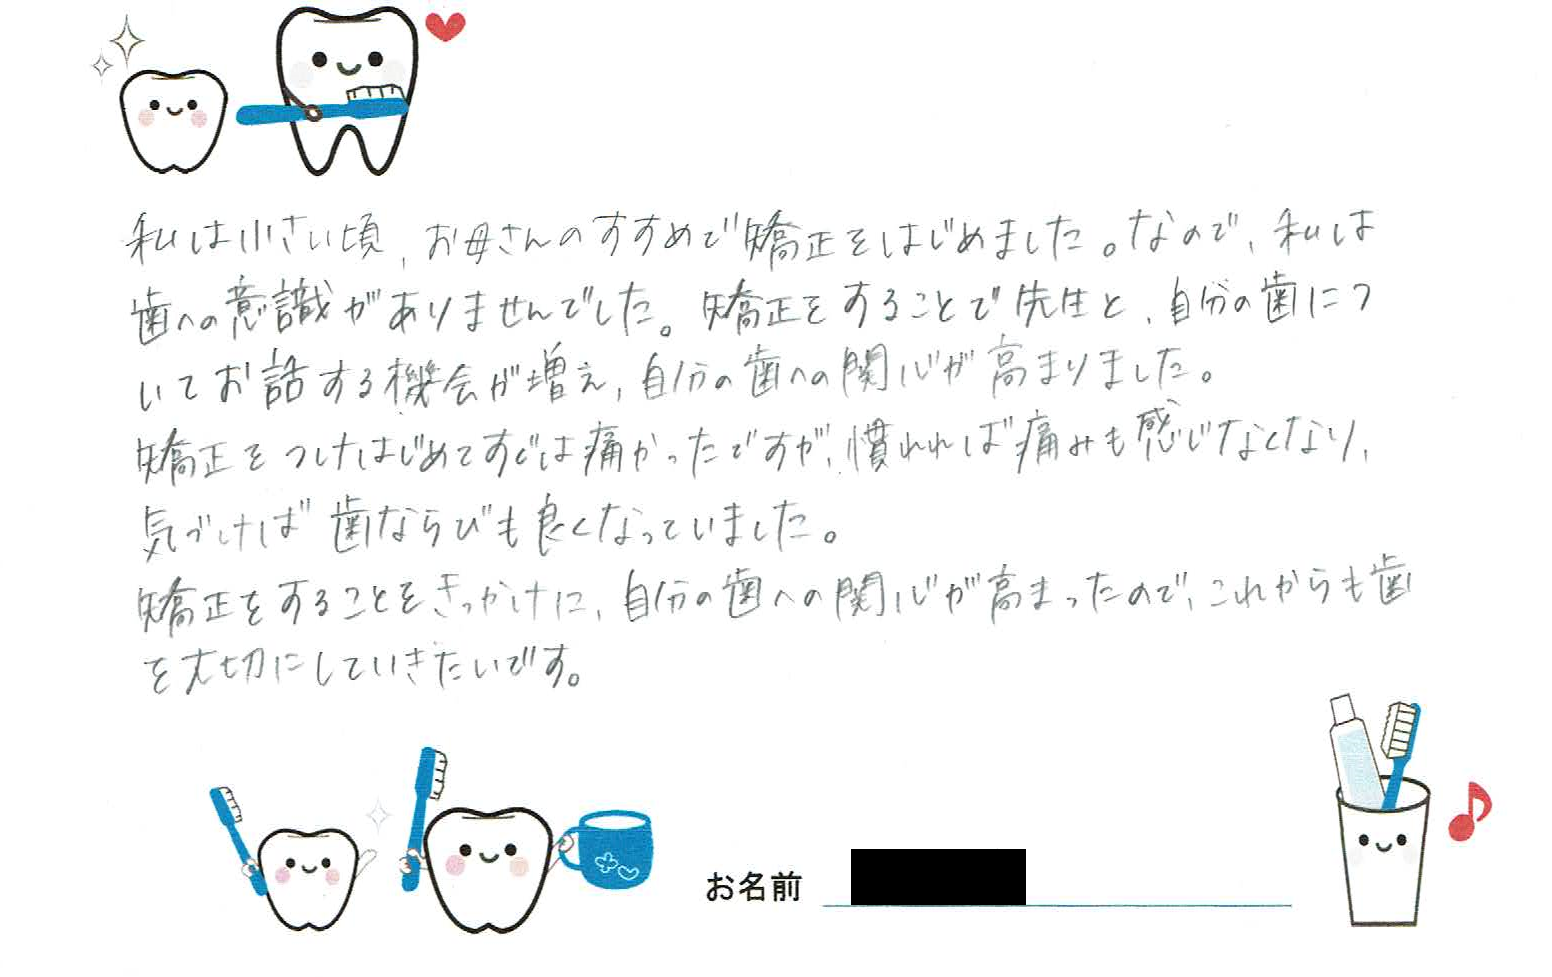 私は小さい頃、お母さんのすすめで矯正をはじめました。なので、私は
歯への意識がありませんでした。矯正をすることで先生と、自分の歯につ
いてお話する機会が増え、自分の歯への関心が高まりました。
矯正をつけはじめてすぐは痛かったですが、慣れれば痛みも感じなくなり、
気づけば歯ならびも良くなっていました。
矯正をすることをきっかけに、自分の歯への関心が高まったので、これからも歯
を大切にしていきたいです。
お名前